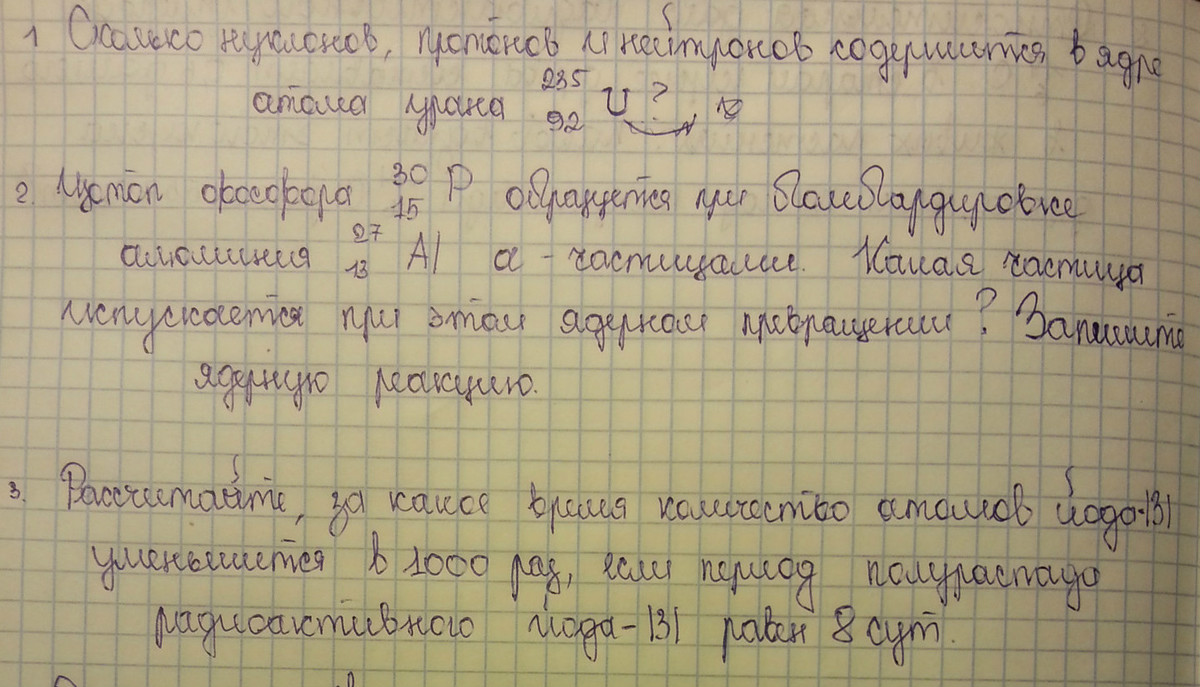 1 Сколько нуклонов, протонов и нейтронов содержится в ядре
атома урана ²³⁵₉₂ U ?
2. Изотоп фосфора ³⁰₁₅ P образуется при бомбардировке
алюминия ²⁷₁₃ Al α - частицами. Какая частица
испускается при этом ядерном превращении? Запишите
ядерную реакцию.
3. Рассчитайте, за какое время количество атомов йода-131
уменьшится в 1000 раз, если период полураспада
радиоактивного йода-131 равен 8 сут.